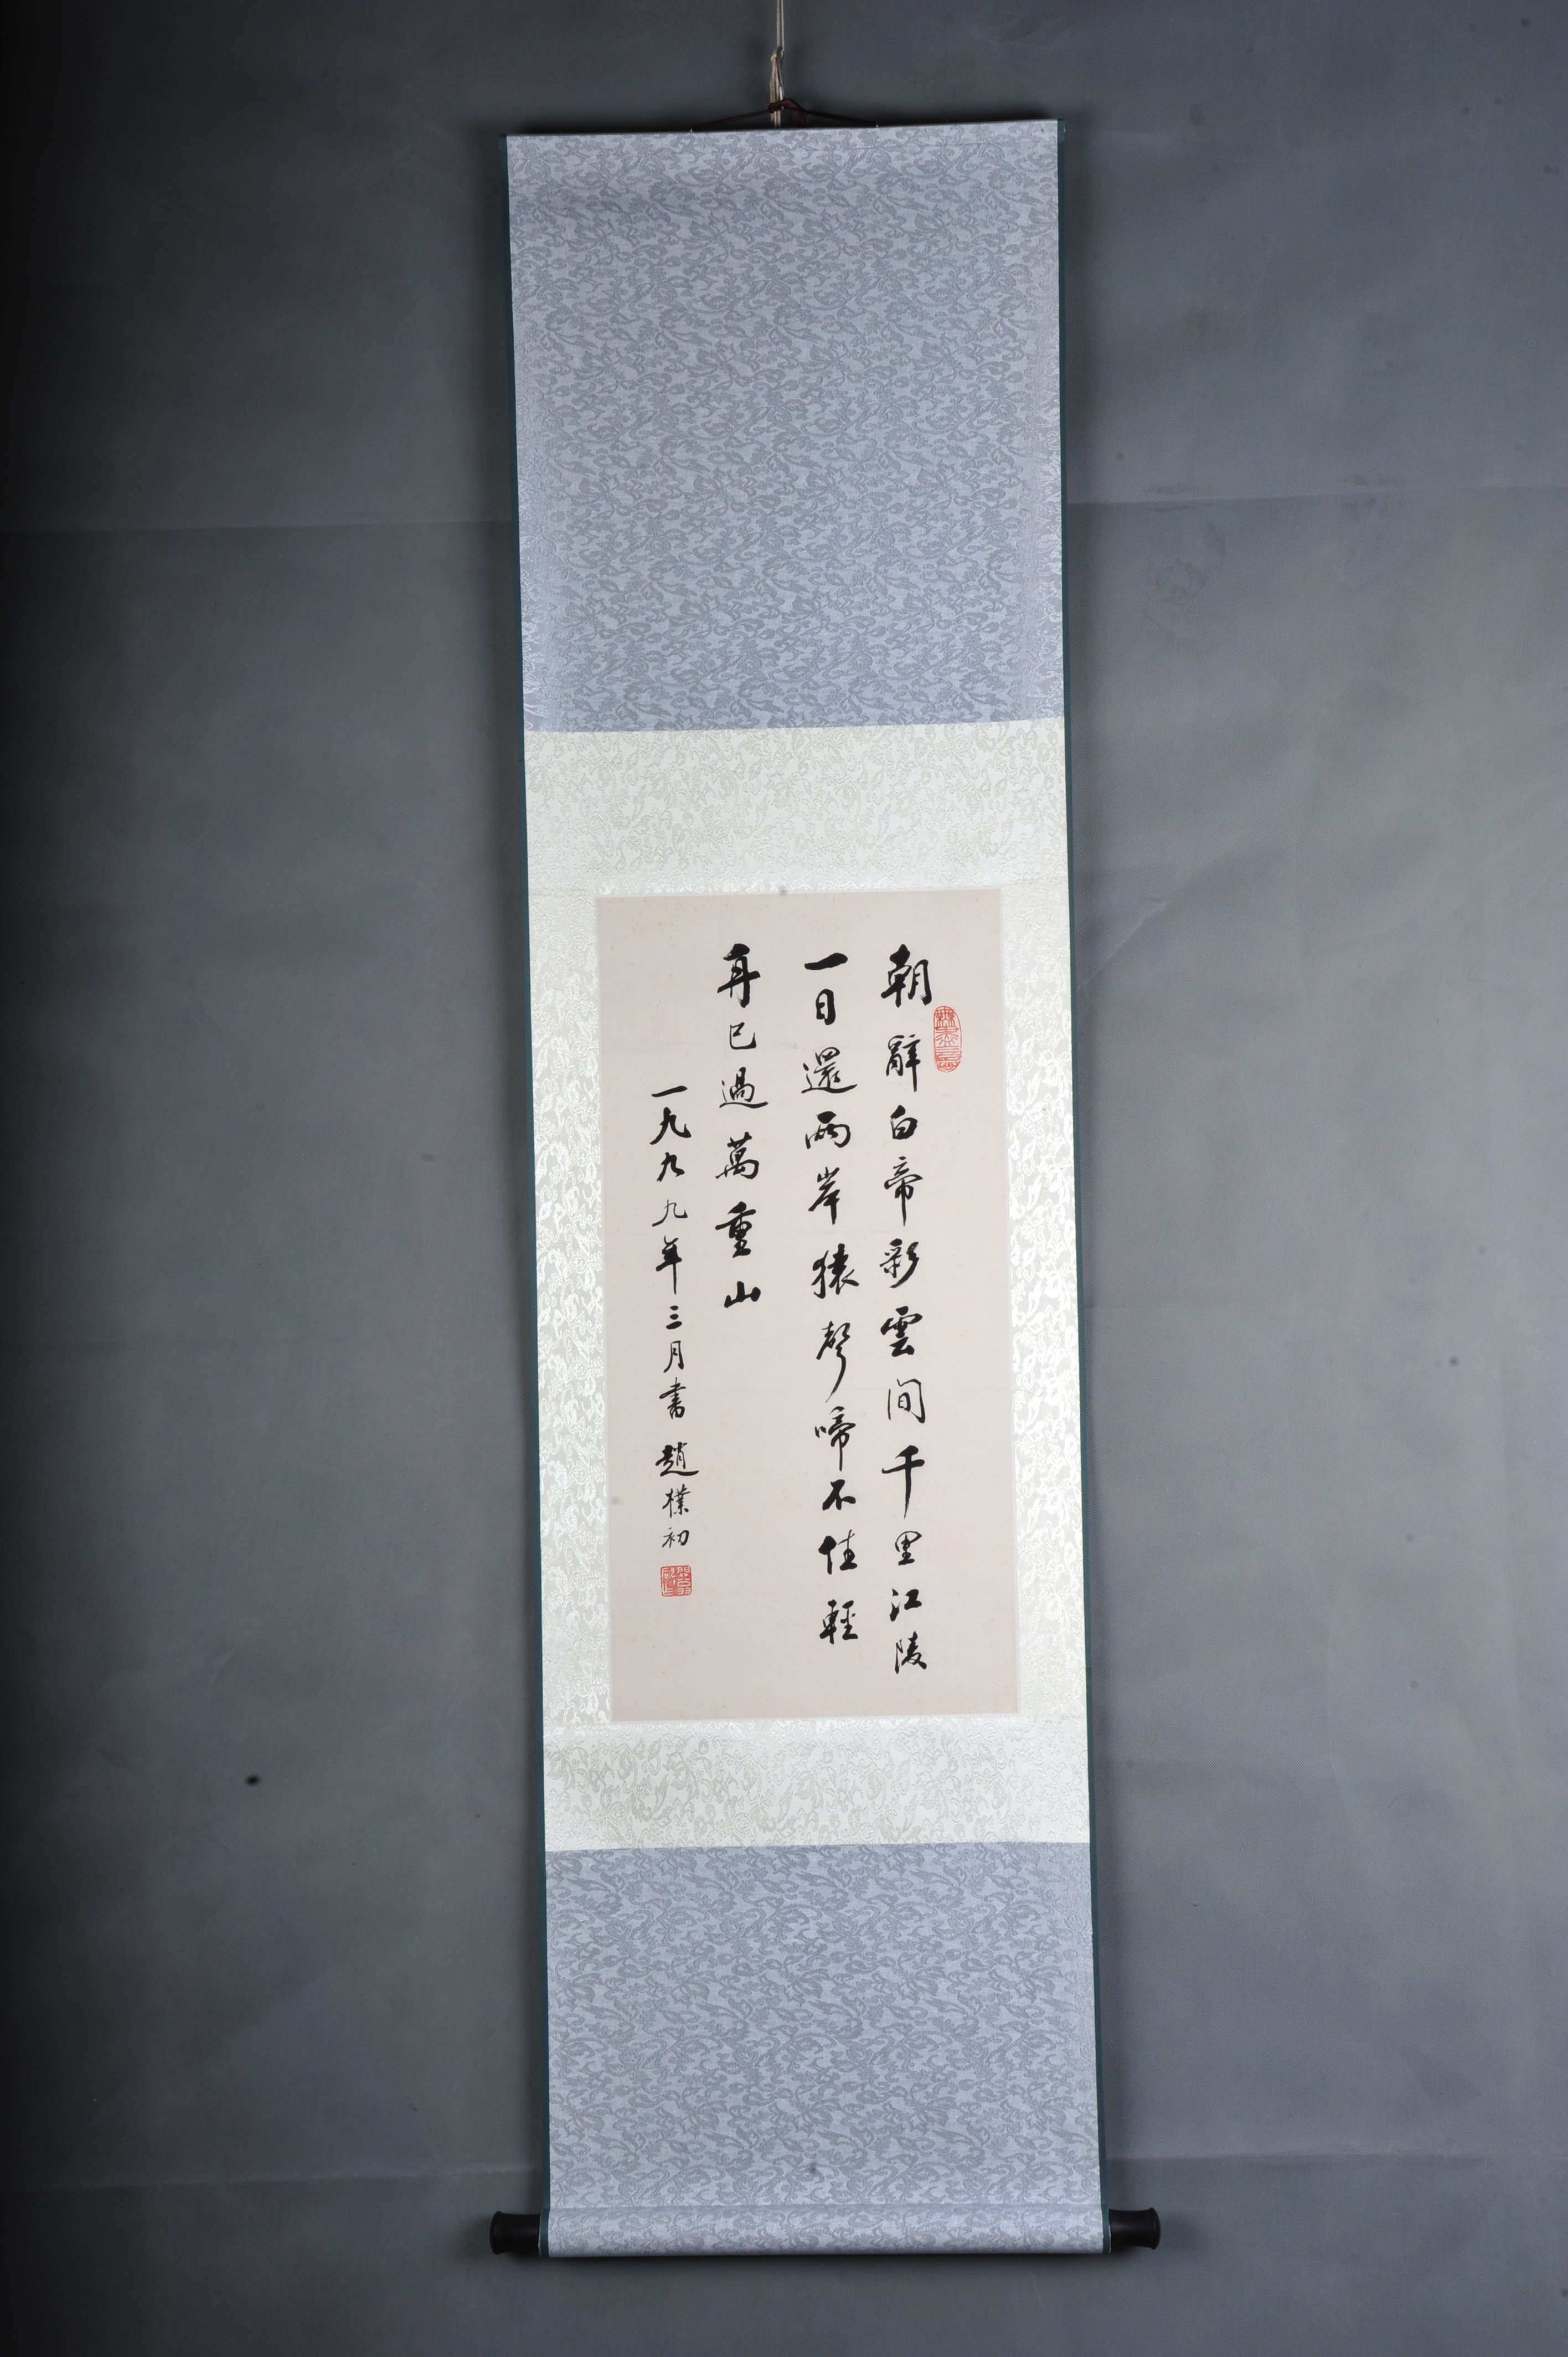 朝辭白帝彩雲間千里江陵
一日還兩岸猿聲啼不住輕
舟已過萬重山
一九九九年三月書 趙樸初